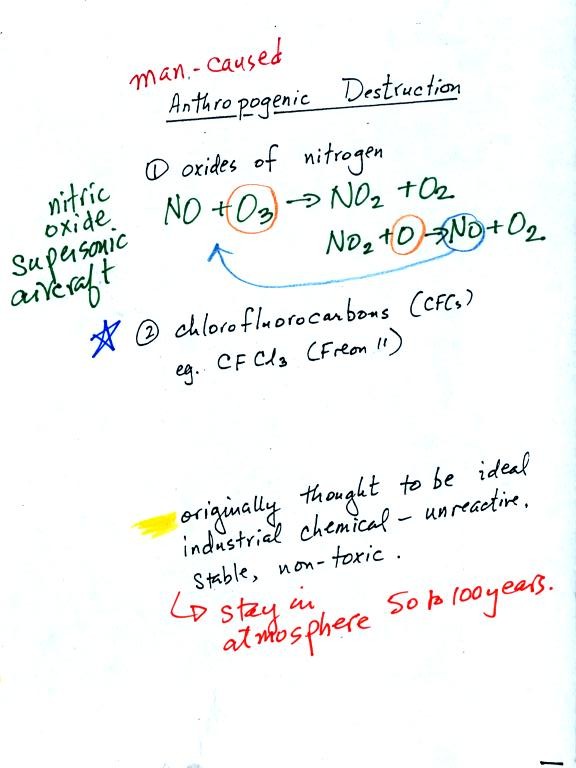 man.-caused
Anthropogenic Destruction
① oxides of nitrogen
nitric
oxide
supersonic
aircraft
NO + O3 → NO2 + O2
NO2 + O → NO + O2
② chlorofluorocarbons (CFCs)
eg. CFCl3 (Freon 11)
originally thought to be ideal
industrial chemical - unreactive,
stable, non-toxic.
↳ stay in
atmosphere 50 to 100 years.